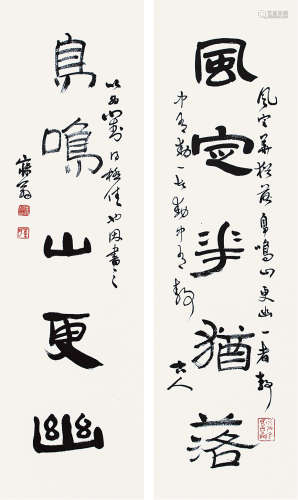 風定華猶落
風定華猶落鳥鳴山更幽一者靜
中有動一者動中有靜
古人
鳥鳴山更幽
以為對極佳也因書之
翁